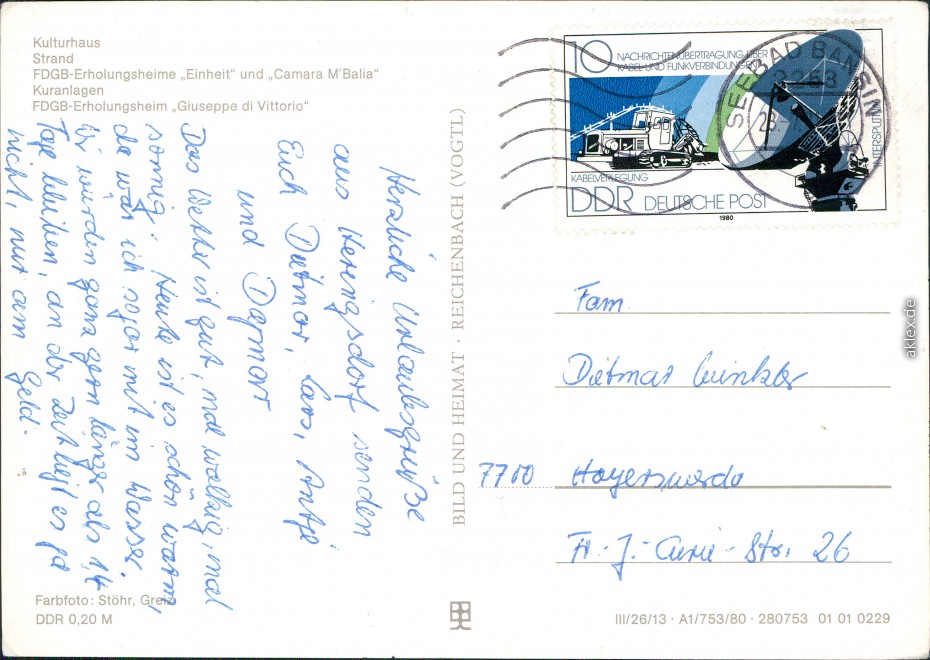 Kulturhaus
Strand
FDGB-Erholungsheime „Einheit“ und „Camara M'Balia“
Kuranlagen
FDGB-Erholungsheim „Giuseppe di Vittorio“
Herzliche Urlaubsgrüße
aus Heringsdorf senden
Euch Dietmar, Lars, Antje
und Dagmar
Das Wetter ist gut, mal wolkig, mal
sonnig. Heute ist es schön warm,
da war ich sogar mit im Wasser.
Wir würden ganz gern länger als 14
Tage bleiben, an der Zeit liegt es ja
nicht, nur am Geld.
Farbfoto: Stöhr, Greiz
DDR 0,20 M
BILD UND HEIMAT · REICHENBACH (VOGTL)
10
NACHRICHTENÜBERTRAGUNG ÜBER
KABEL UND FUNKVERBINDUNGEN
KABELVERLEGUNG
INTERSPUTNIK
DDR DEUTSCHE POST
1980
SEEBAD BANSIN
2253
Fam.
Dietmar Winkler
7700 Hoyerswerda
Fr.-J.-Curie-Str. 26
III/26/13 · A1/753/80 · 280753 01 01 0229
aklex.de